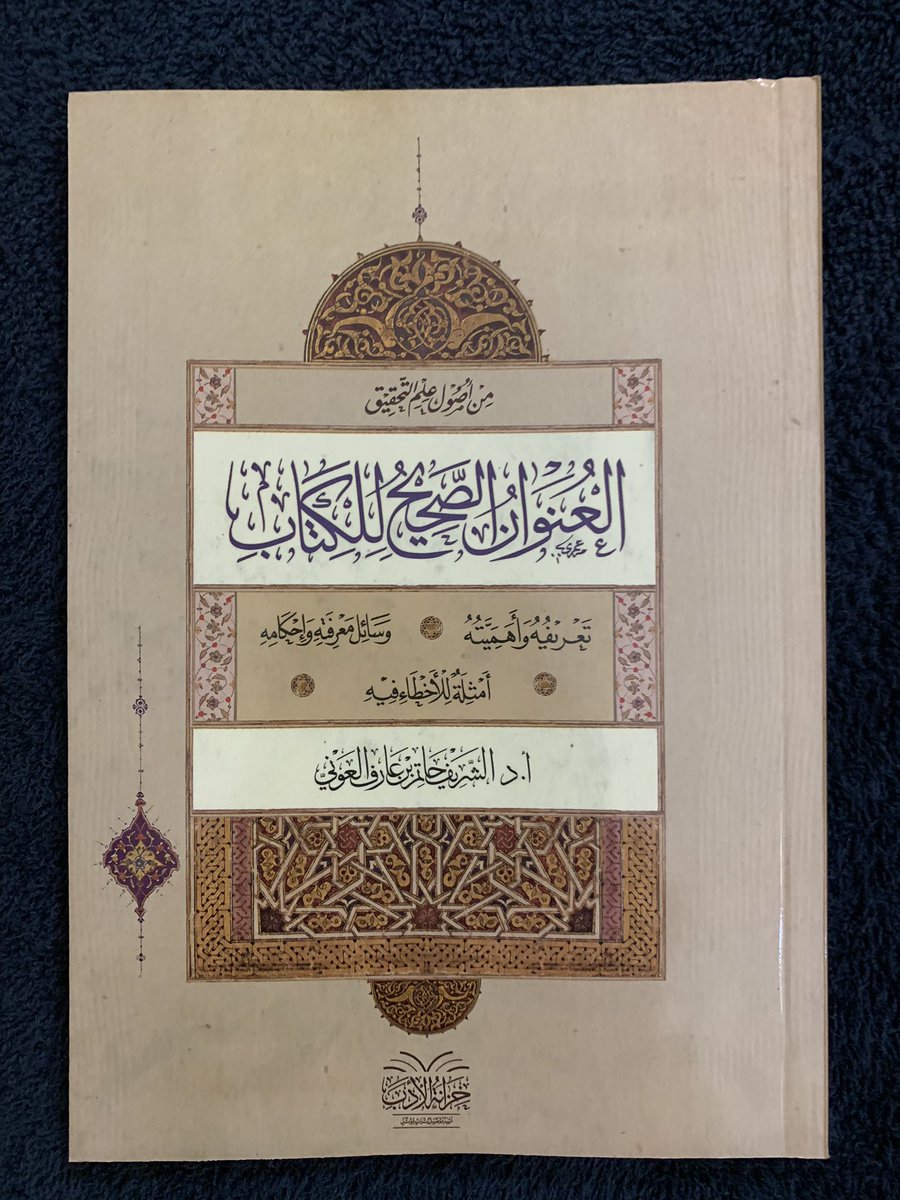 مِنْ أُصُولِ عِلْمِ التَّحْقِيقِ
العُنْوَانُ الصَّحِيحُ لِلْكِتَابِ
تَعْرِيفُهُ وَأَهَمِّيَّتُهُ وَسَائِلُ مَعْرِفَتِهِ وَإِحْكَامِهِ
أَمْثِلَةٌ لِلْأَخْطَاءِ فِيهِ
أ.د الشَّرِيف حَاتِم بْن عَارِف العَوْنِيّ
خِزَانَةُ الأَدَبِ